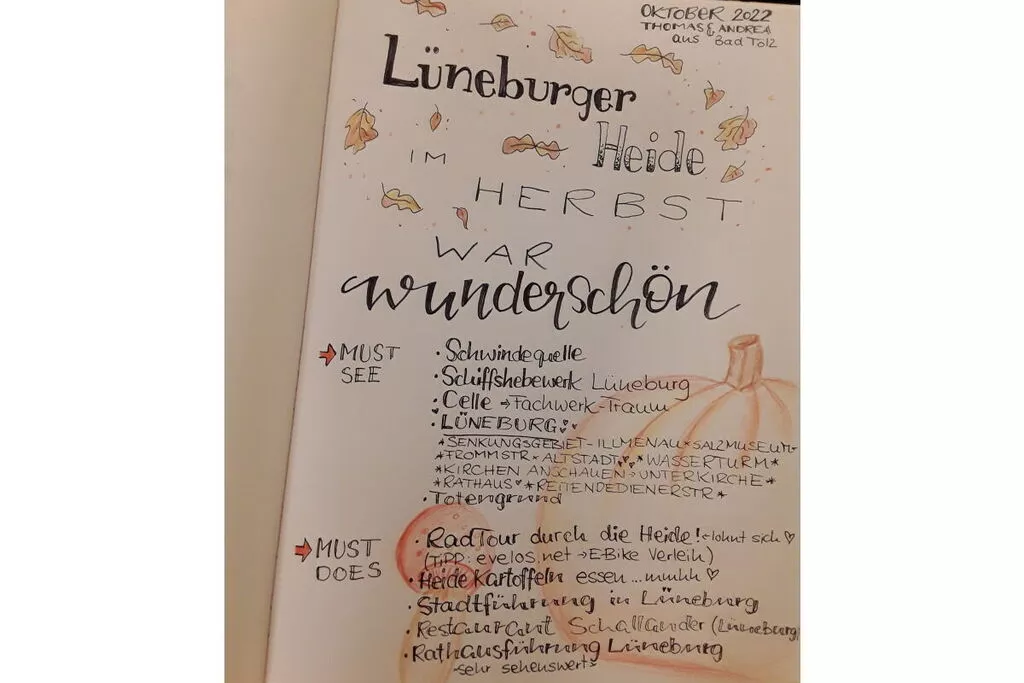 OKTOBER 2022
THOMAS & ANDREA
aus Bad Tölz
Lüneburger
Heide
IM
HERBST
WAR
wunderschön
➔ MUST
SEE
· Schwindequelle
· Schiffshebewerk Lüneburg
· Celle → Fachwerk-Traum
· LÜNEBURG
*SENKUNGSGEBIET - ILLMENAU * SALZMUSEUM -
*FROMMSTR * ALTSTADT ♥♥ * WASSERTURM *
*KIRCHEN ANSCHAUEN → UNTERKIRCHE *
*RATHAUS ♥ * REITENDEDIENERSTR *
· Totengrund
➔ MUST
DOES
· RadTour durch die Heide! - lohnt sich ♡
(TiPP: evelos.net → E-Bike Verleih)
· Heide Kartoffeln essen ... mmhh ♡
· Stadtführung in Lüneburg
· Restaurant Schallander (Lüneburg)
· Rathausführung Lüneburg
- sehr sehenswert